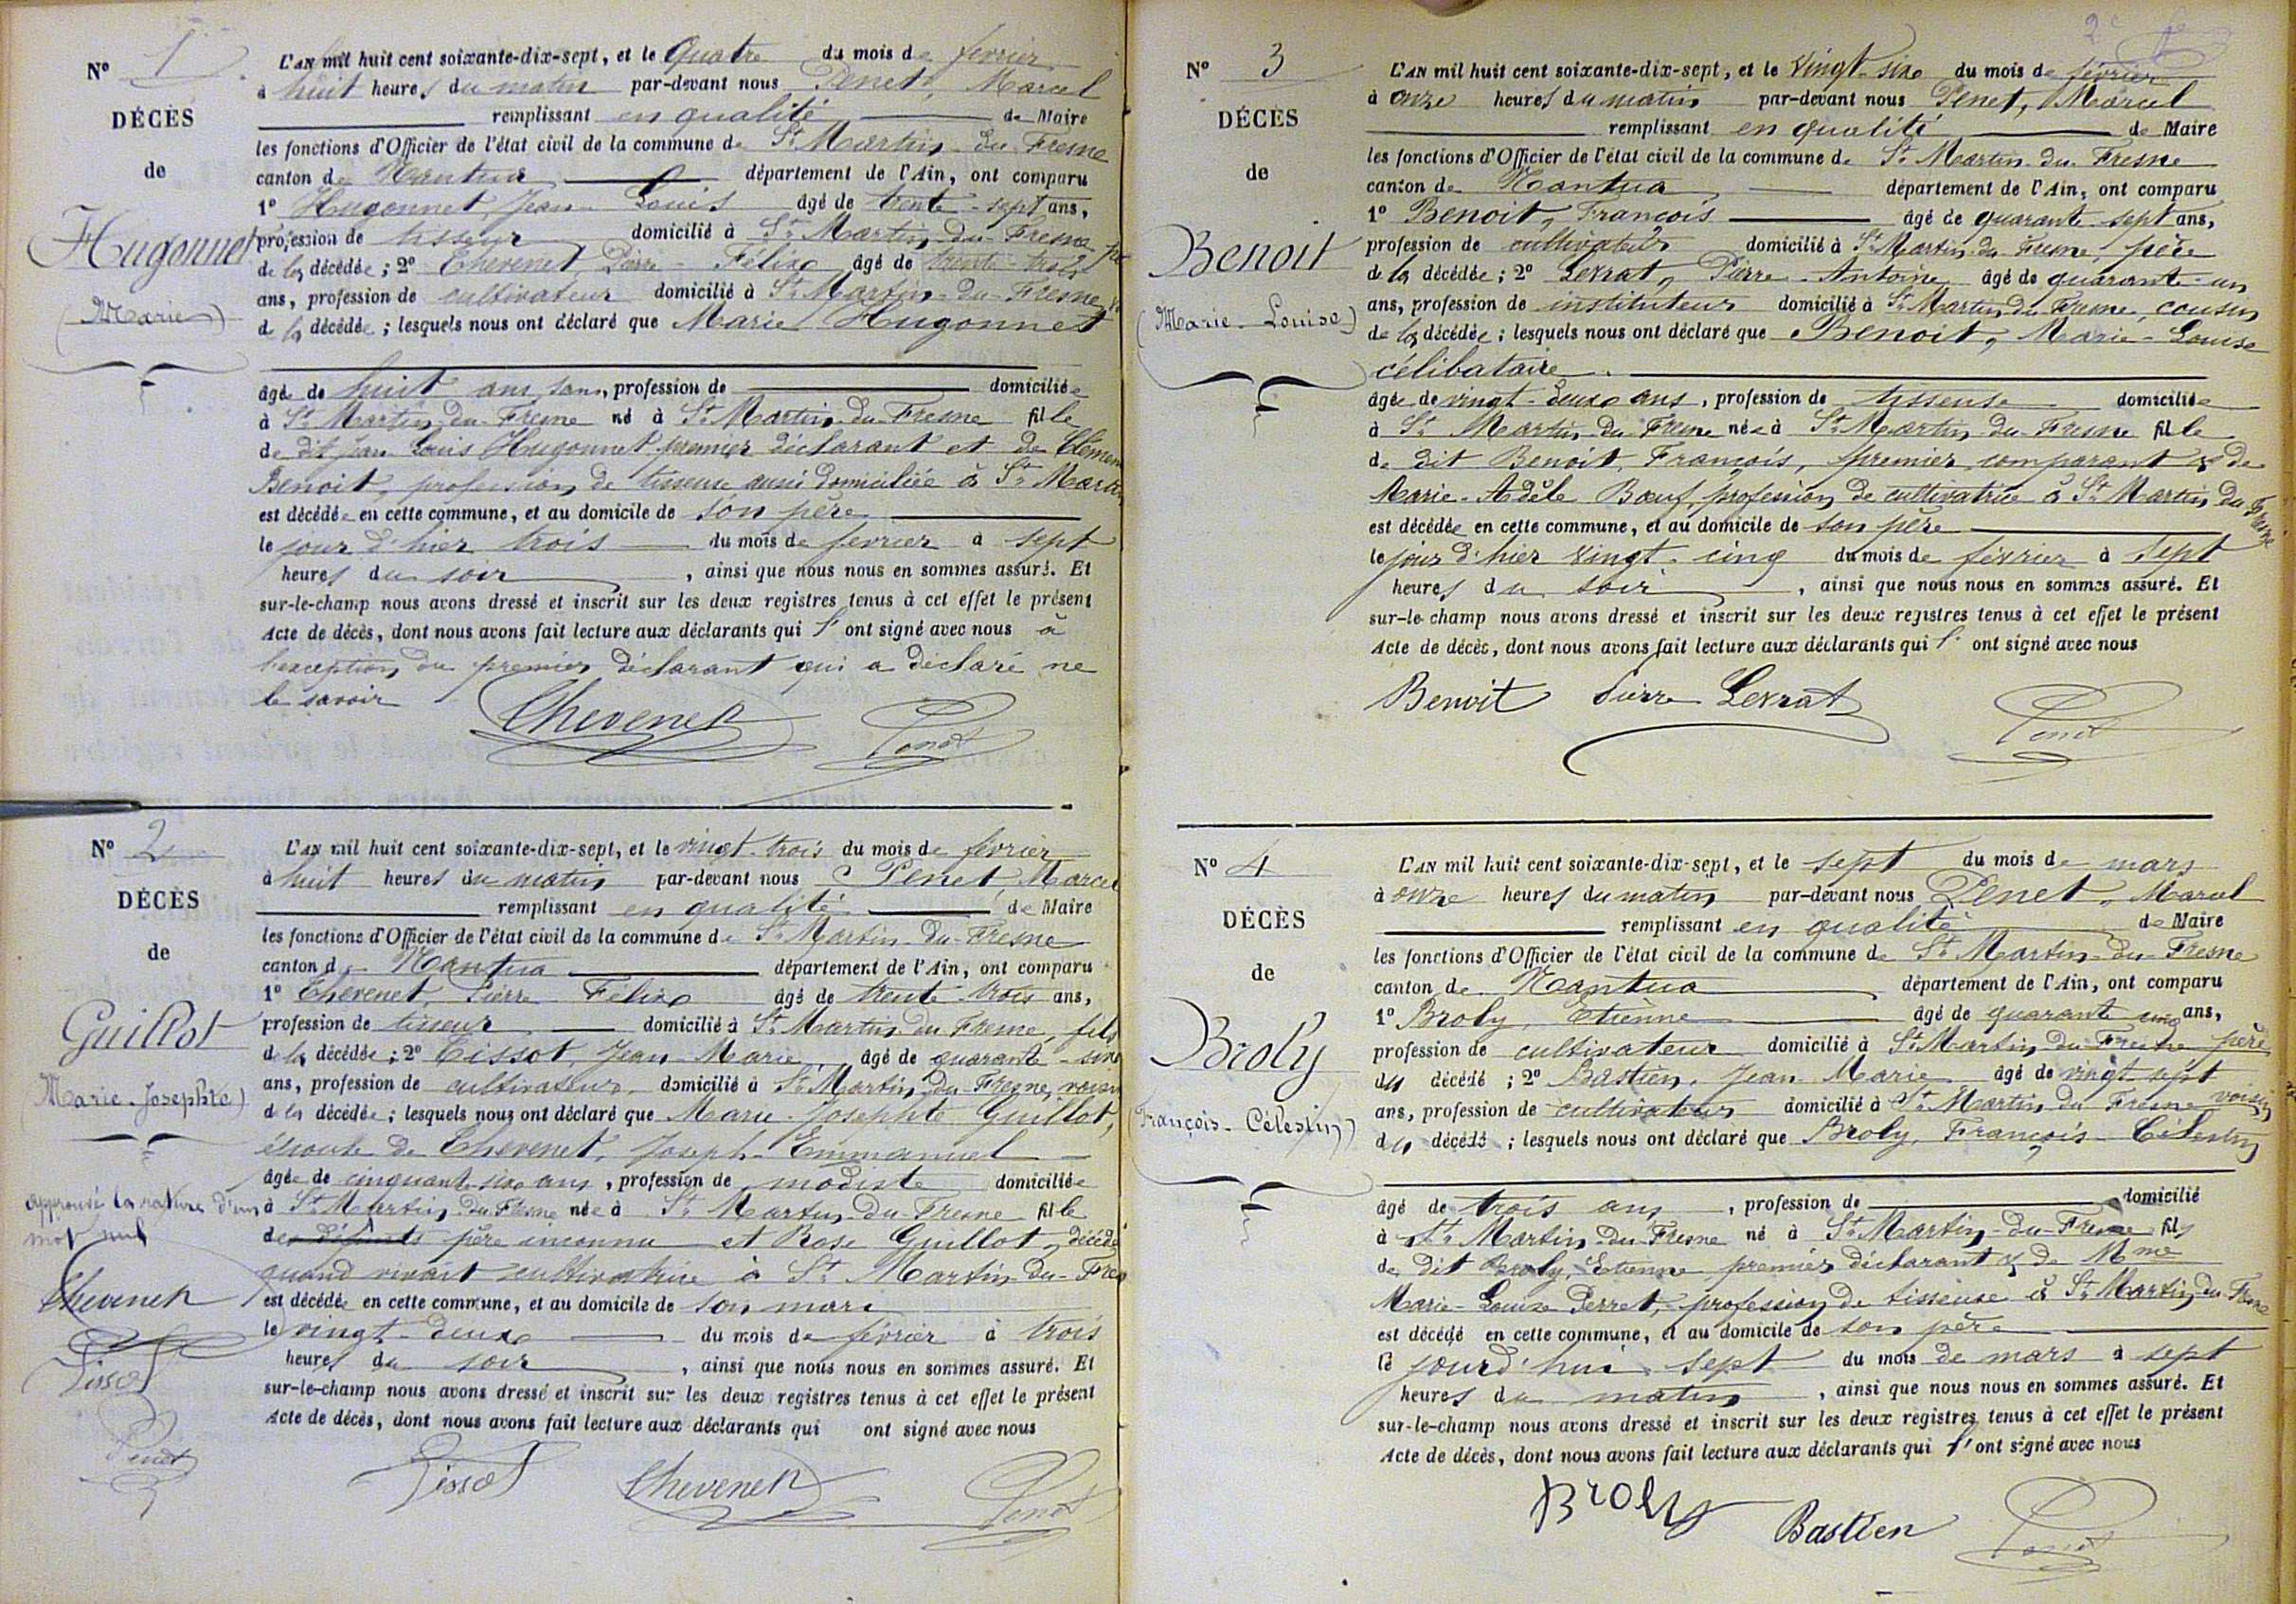 N° 1
DÉCÈS
de
Hugonnet
(Marie)
L'AN mil huit cent soixante-dix-sept, et le quatre du mois de février
à huit heures du matin par-devant nous Penet, Marcel
remplissant en qualité de Maire
les fonctions d'Officier de l'état civil de la commune de St Martin-du-Fresne
canton de Nantua département de l'Ain, ont comparu
1° Hugonnet, Jean-Louis âgé de trente-sept ans,
profession de tisseur domicilié à St Martin-du-Fresne
de la décédée; 2° Chevenet, Pierre Félix âgé de trente-trois
ans, profession de cultivateur domicilié à St Martin-du-Fresne
de la décédée; lesquels nous ont déclaré que Marie Hugonnet
âgée de huit ans, sans, profession de domiciliée
à St Martin-du-Fresne né à St Martin-du-Fresne fille
de dit Jean Louis Hugonnet premier déclarant et de Clémen
Benoit, profession de tisseuse aussi domiciliée à St Martin
est décédée en cette commune, et au domicile de son père
le jour d'hier trois du mois de février à sept
heures du soir, ainsi que nous nous en sommes assuré. Et
sur-le-champ nous avons dressé et inscrit sur les deux registres tenus à cet effet le présent
Acte de décès, dont nous avons fait lecture aux déclarants qui l'ont signé avec nous à
l'exception du premier déclarant qui a déclaré ne
le savoir
Chevenet Penet
N° 2
DÉCÈS
de
Guillot
(Marie-Josephte)
approuvé la rature d'un
mot nul
Chevenet
Tissot
Penet
L'AN mil huit cent soixante-dix-sept, et le vingt-trois du mois de février
à huit heures du matin par-devant nous Penet, Marcel
remplissant en qualité de Maire
les fonctions d'Officier de l'état civil de la commune de St Martin-du-Fresne
canton de Nantua département de l'Ain, ont comparu
1° Chevenet, Pierre Félix âgé de trente-trois ans,
profession de tisseur domicilié à St Martin-du-Fresne, fils
de la décédée; 2° Tissot, Jean-Marie, âgé de quarante-six
ans, profession de cultivateur, domicilié à St Martin-du-Fresne, voisin
de la décédée; lesquels nous ont déclaré que Marie-Josephte Guillot,
épouse de Chevenet, Joseph-Emmanuel
âgée de cinquante-six ans, profession de modiste domiciliée
à St Martin-du-Fresne née à St Martin-du-Fresne fille
de défunts père inconnu et Rose Guillot, décédé
quand vivait cultivatrice à St Martin-du-Fres
est décédée en cette commune, et au domicile de son mari
le vingt-deux du mois de février à trois
heures du soir, ainsi que nous nous en sommes assuré. Et
sur-le-champ nous avons dressé et inscrit sur les deux registres tenus à cet effet le présent
Acte de décès, dont nous avons fait lecture aux déclarants qui ont signé avec nous
Tissot Chevenet Penet
2e
N° 3
DÉCÈS
de
Benoit
(Marie-Louise)
L'AN mil huit cent soixante-dix-sept, et le vingt-six du mois de février
à onze heures du matin par-devant nous Penet, Marcel
remplissant en qualité de Maire
les fonctions d'Officier de l'état civil de la commune de St Martin-du-Fresne
canton de Nantua département de l'Ain, ont comparu
1° Benoit, François âgé de quarante-sept ans,
profession de cultivateur domicilié à St Martin-du-Fresne, père
de la décédée; 2° Levrat, Pierre-Antoine, âgé de quarante-un
ans, profession de instituteur domicilié à St Martin-du-Fresne, cousin
de la décédée; lesquels nous ont déclaré que Benoit, Marie-Louise
célibataire.
âgée de vingt-deux ans, profession de tisseuse domiciliée
à St Martin-du-Fresne née à St Martin-du-Fresne fille
de dit Benoit, François, premier comparant & de
Marie-Adèle Bœuf, profession de cultivatrice à St Martin-du-Fresne
est décédée en cette commune, et au domicile de son père
le jour d'hier vingt-cinq du mois de février à sept
heures du soir, ainsi que nous nous en sommes assuré. Et
sur-le-champ nous avons dressé et inscrit sur les deux registres tenus à cet effet le présent
Acte de décès, dont nous avons fait lecture aux déclarants qui l'ont signé avec nous
Benoit Pierre Levrat Penet
N° 4
DÉCÈS
de
Broly
(François-Célestin)
L'AN mil huit cent soixante-dix-sept, et le sept du mois de mars
à onze heures du matin par-devant nous Penet, Marcel
remplissant en qualité de Maire
les fonctions d'Officier de l'état civil de la commune de St Martin-du-Fresne
canton de Nantua département de l'Ain, ont comparu
1° Broly, Etienne âgé de quarante cinq ans,
profession de cultivateur domicilié à St Martin-du-Fresne père
du décédé; 2° Bastien, Jean-Marie âgé de vingt-sept
ans, profession de cultivateur domicilié à St Martin-du-Fresne voisin
du décédé; lesquels nous ont déclaré que Broly, François-Célestin
âgé de trois ans, profession de domicilié
à St Martin-du-Fresne né à St Martin-du-Fresne fils
de dit Broly, Etienne premier déclarant & de Mme
Marie-Louise Perret, profession de tisseuse à St Martin-du-Fresne
est décédé en cette commune, et au domicile de son père
le jourd'hui sept du mois de mars à sept
heures du matin, ainsi que nous nous en sommes assuré. Et
sur-le-champ nous avons dressé et inscrit sur les deux registres tenus à cet effet le présent
Acte de décès, dont nous avons fait lecture aux déclarants qui l'ont signé avec nous
Broly Bastien Penet